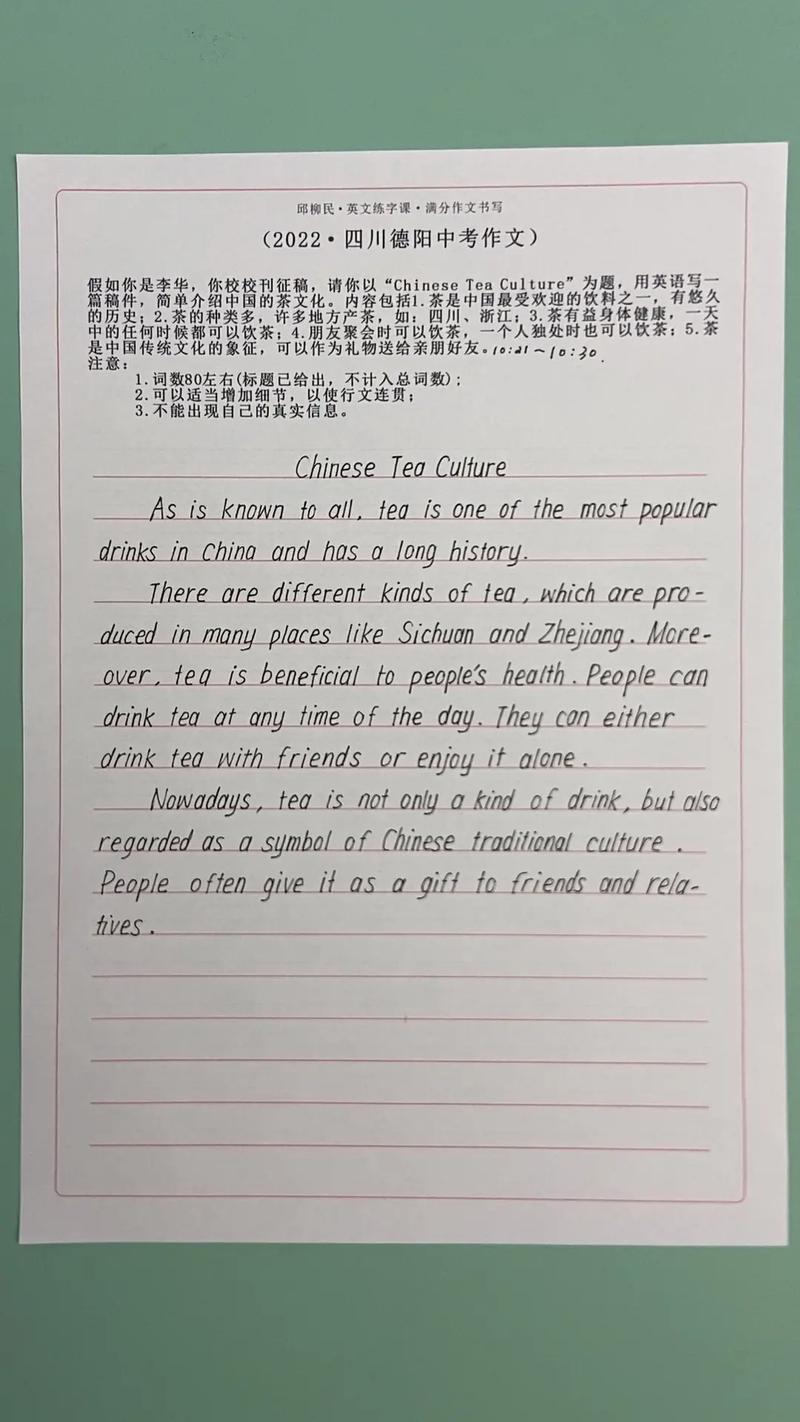 邱柳民·英文练字课·满分作文书写
（2022·四川德阳中考作文）
假如你是李华，你校校刊征稿，请你以“Chinese Tea Culture”为题，用英语写一
篇稿件，简单介绍中国的茶文化。内容包括1.茶是中国最受欢迎的饮料之一，有悠久
的历史；2.茶的种类多，许多地方产茶，如：四川、浙江；3.茶有益身体健康，一天
中的任何时候都可以饮茶；4.朋友聚会时可以饮茶，一个人独处时也可以饮茶；5.茶
是中国传统文化的象征，可以作为礼物送给亲朋好友。10:21~10:30.
注意：
1.词数80左右(标题已给出，不计入总词数)；
2.可以适当增加细节，以使行文连贯；
3.不能出现自己的真实信息。
Chinese Tea Culture
As is known to all, tea is one of the most popular
drinks in China and has a long history.
There are different kinds of tea, which are pro-
duced in many places like Sichuan and Zhejiang. More-
over, tea is beneficial to people's health. People can
drink tea at any time of the day. They can either
drink tea with friends or enjoy it alone.
Nowadays, tea is not only a kind of drink, but also
regarded as a symbol of Chinese traditional culture.
People often give it as a gift to friends and rela-
tives.